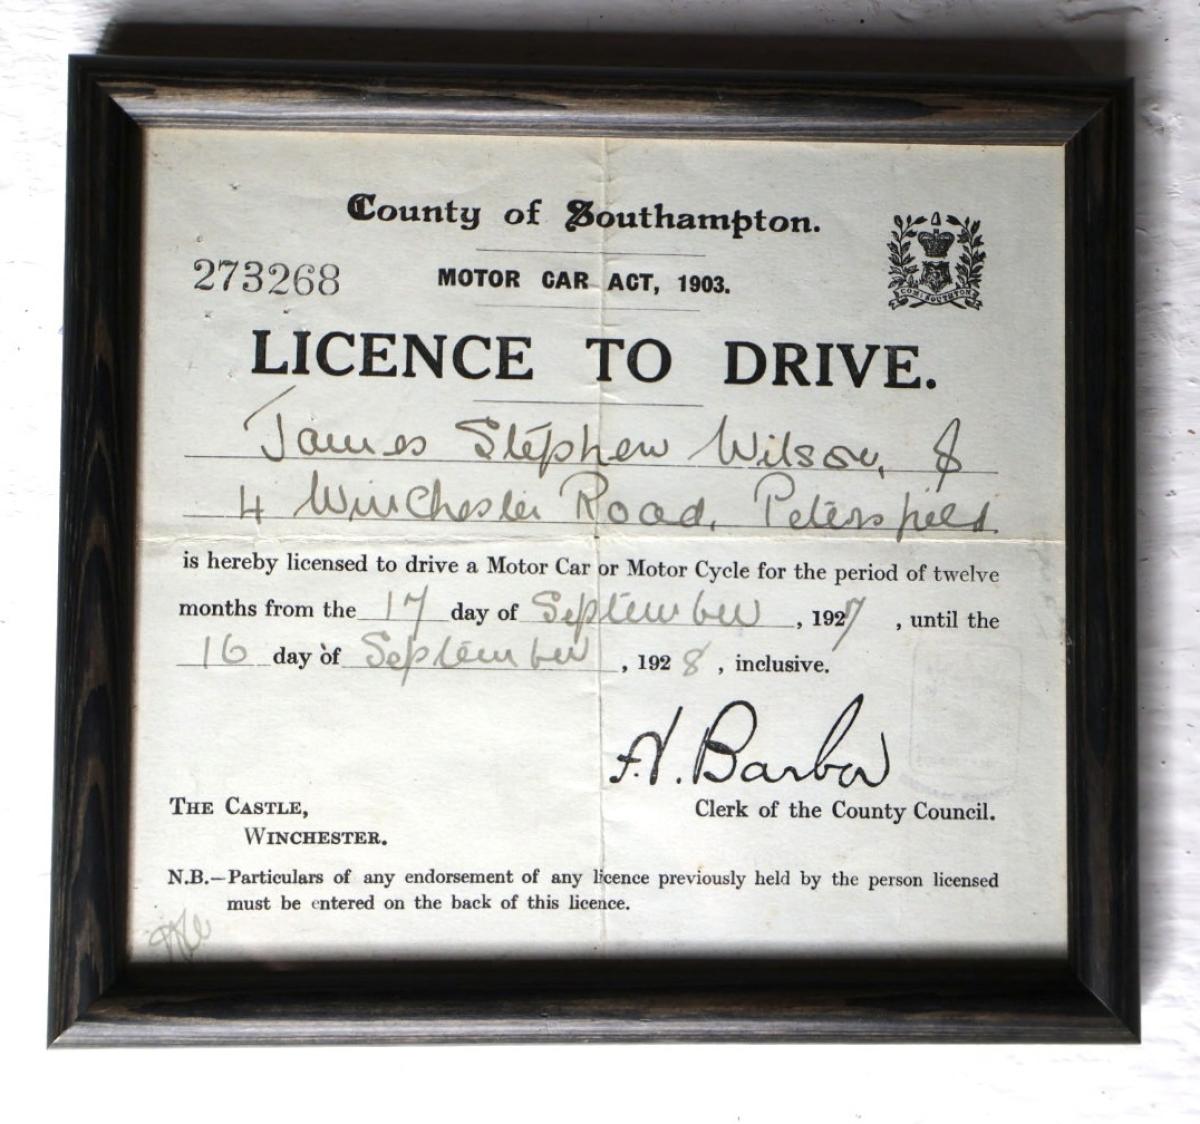 County of Southampton.
273268
MOTOR CAR ACT, 1903.
LICENCE TO DRIVE.
James Stephen Wilson, &
4 Winchester Road, Petersfield
is hereby licensed to drive a Motor Car or Motor Cycle for the period of twelve
months from the 17 day of September, 1927, until the
16 day of September, 1928, inclusive.
Clerk of the County Council.
THE CASTLE,
WINCHESTER.
N.B.—Particulars of any endorsement of any licence previously held by the person licensed
must be entered on the back of this licence.